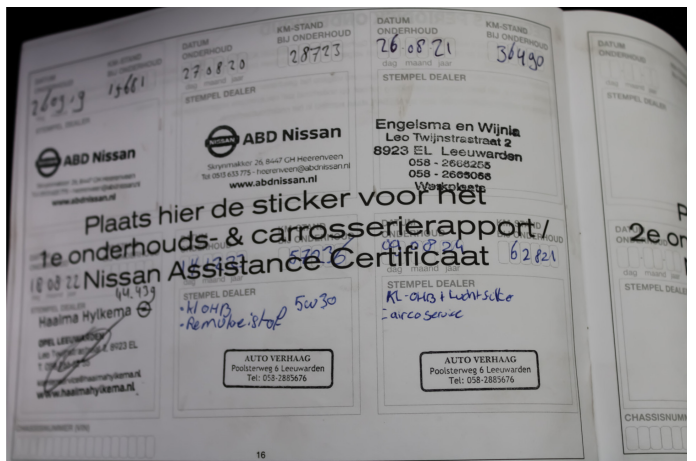 DATUM
ONDERHOUD
KM-STAND
BIJ ONDERHOUD
15681
STEMPEL DEALER
NISSAN
ABD Nissan
www.abdnissan.nl
DATUM
ONDERHOUD
KM-STAND
BIJ ONDERHOUD
27 08 20
28723
dag maand jaar
STEMPEL DEALER
NISSAN
ABD Nissan
Skrynmakker 26, 8447 GH Heerenveen
Tel (0513) 633 775 - heerenveen@abdnissan.nl
www.abdnissan.nl
DATUM
ONDERHOUD
KM-STAND
BIJ ONDERHOUD
26 08 21
36490
dag maand jaar
STEMPEL DEALER
Engelsma en Wijnia
Leo Twijnstrastraat 2
8923 EL Leeuwarden
058 - 2668255
058 - 2669066
Werkplaats
Plaats hier de sticker voor het
1e onderhouds- & carrosserierapport /
Nissan Assistance Certificaat
18 08 22
44.439
STEMPEL DEALER
Haaima Hylkema
OPEL LEEUWARDEN
8923 EL
www.haaimahylkema.nl
dag maand jaar
STEMPEL DEALER
•kl OHB 5W30
•Remvloeistof
AUTO VERHAAG
Poolsterweg 6 Leeuwarden
Tel: 058-2885676
KM-STAND
09 08 24
62821
dag maand jaar
STEMPEL DEALER
KL-OHB + Luchtfilter
airco service
AUTO VERHAAG
Poolsterweg 6 Leeuwarden
Tel: 058-2885676
CHASSISNUMMER (VIN)
16
DATUM
ONDERHOUD
dag maand
STEMPEL DEALER
2e on
dag maand
STEMPEL DEALE
CHASSISNUMM